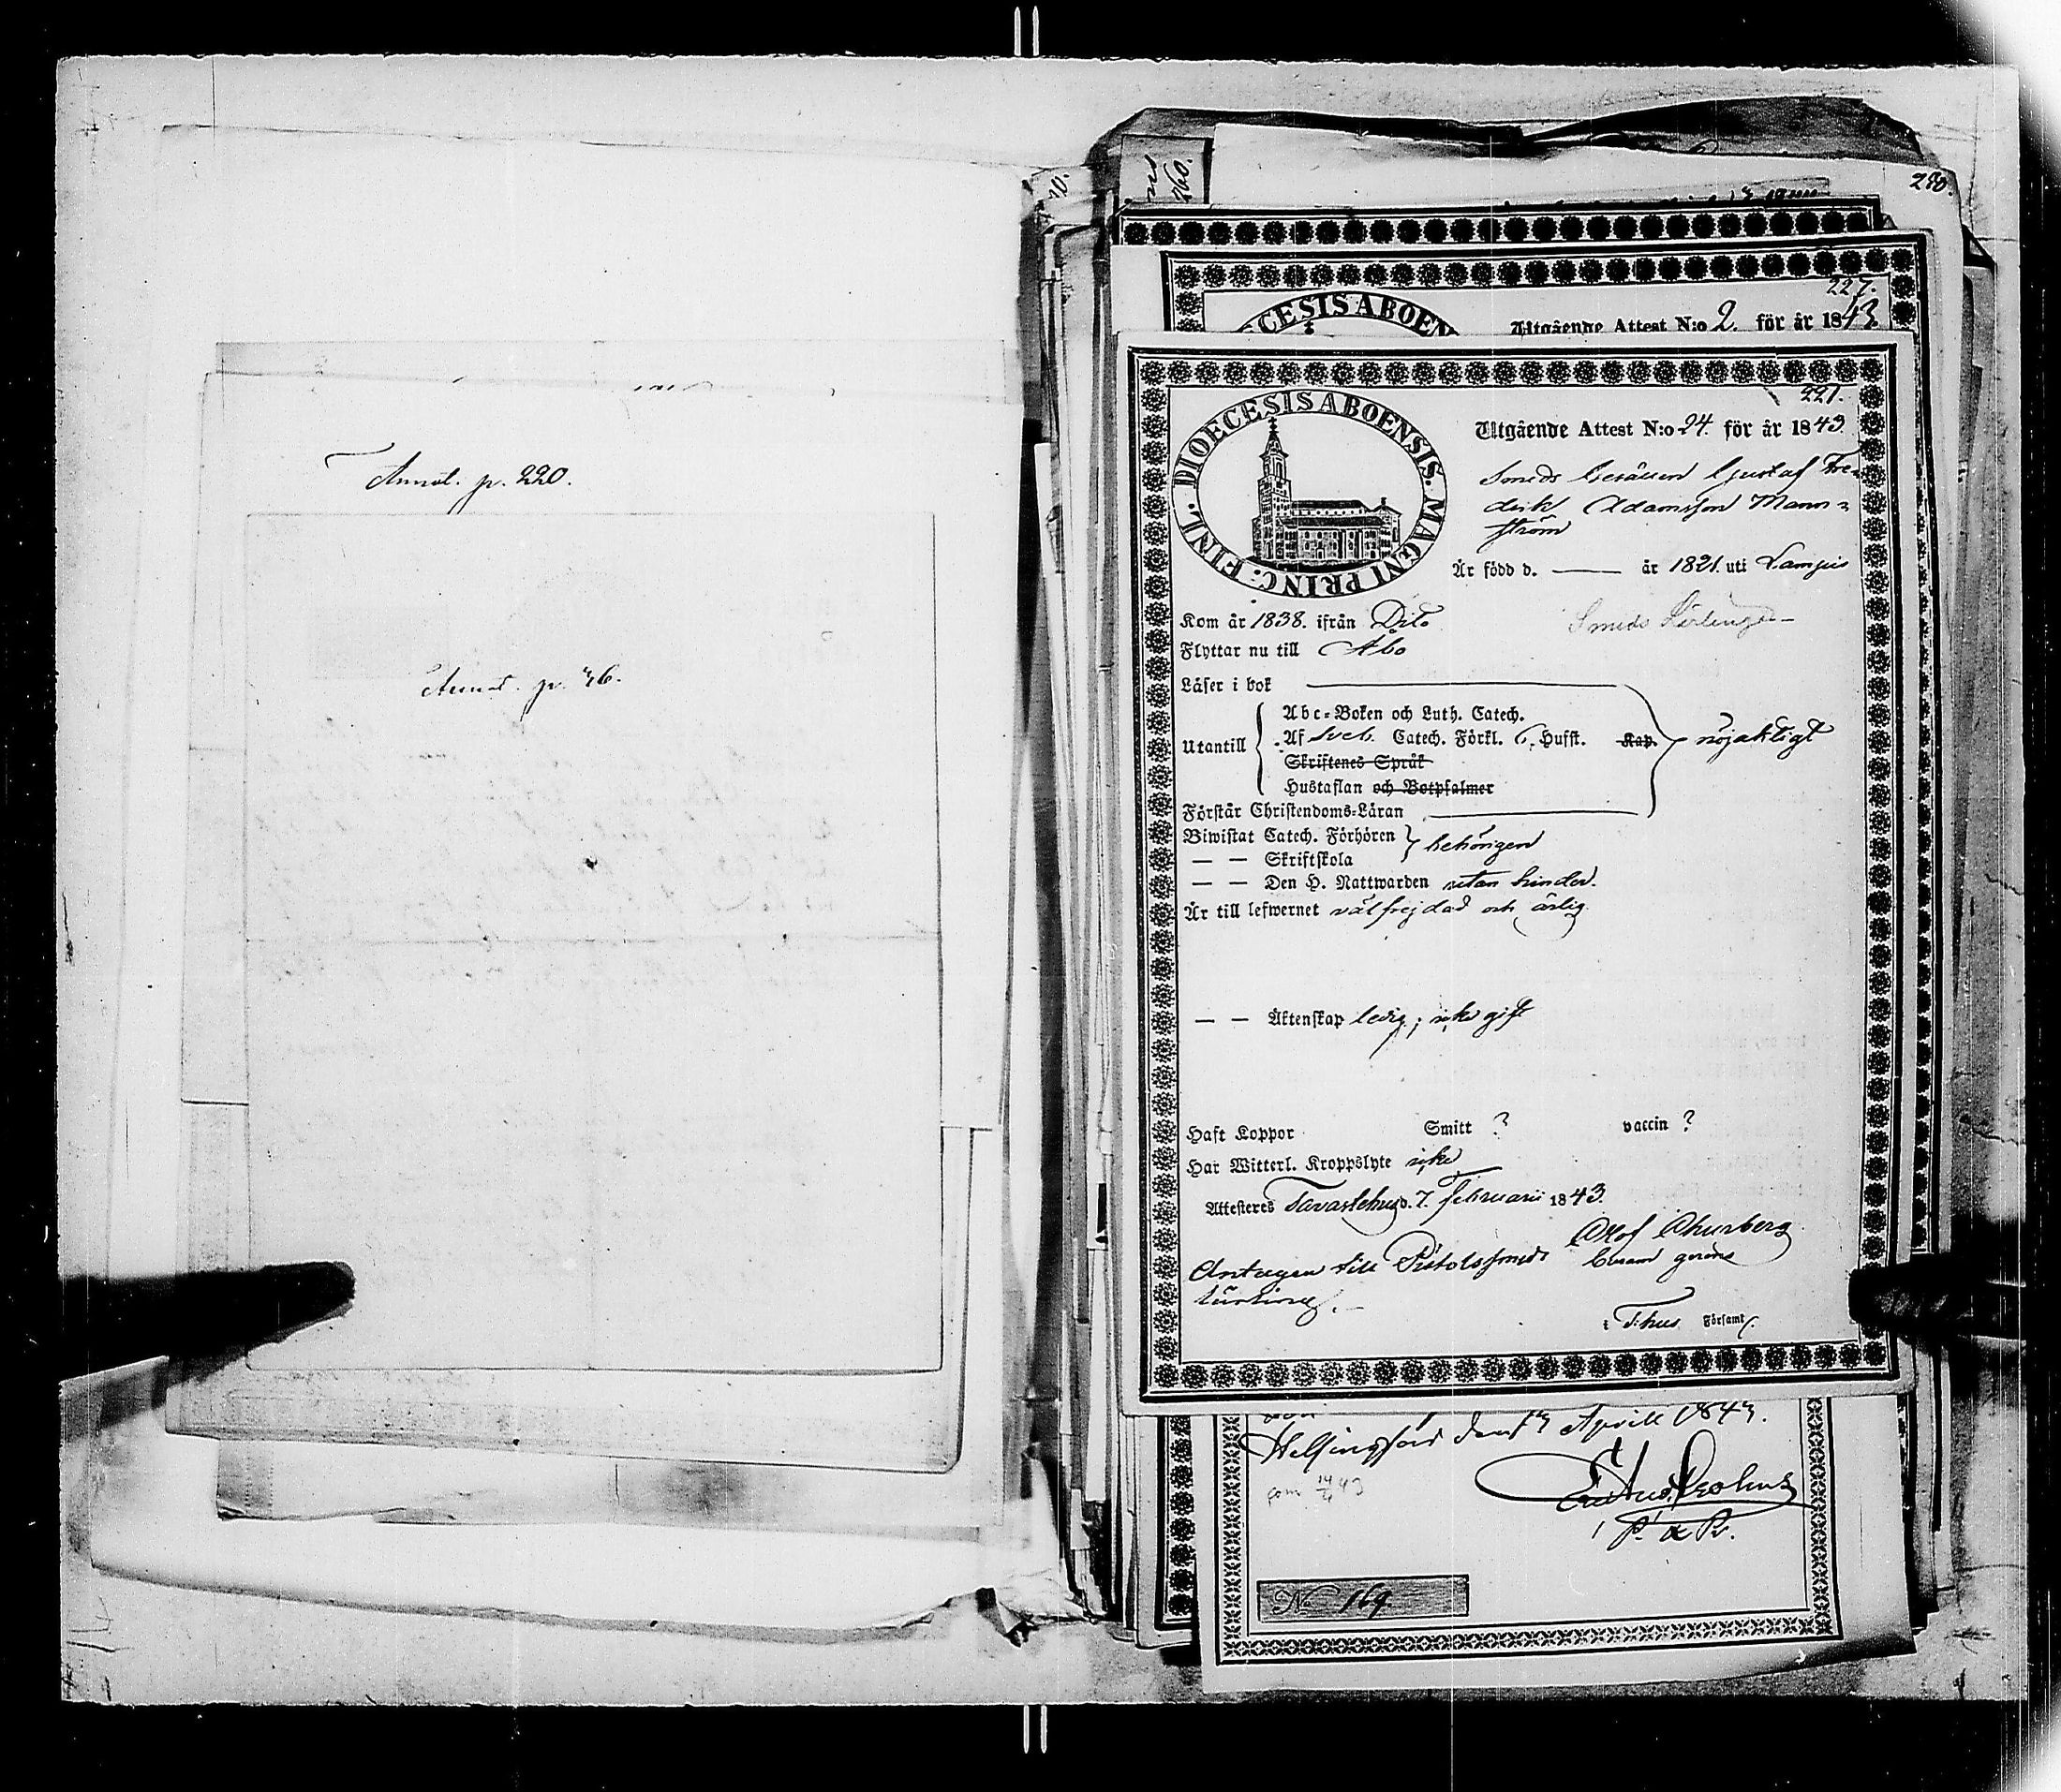 Annot. p. 220.
Annot. p. 46.
260.
230.
227.
DIOECESIS ABOEN
Utgående Attest N:o 2. för år 1843
221.
DIOECESIS ABOENSIS. MAGNI PRINC: FINL.
Utgående Attest N:o 24. för år 1843.
Smeds Gesällen Gustaf Fre-
drik Adamsson Mann-
ström
Är född d. —— år 1821. uti Lampis
Kom år 1838. ifrån Dito
Smeds Lärling
Flyttar nu till Åbo
Läser i bok
Abc-Boken och Luth. Catech.
Utantill Af Sveb. Catech. Förkl. 6. Hufst. Kap. nöjaktigt
Skriftenes Språk
Hustaflan och Botpsalmer
Förstår Christendoms-Läran
Biwistat Catech. Förhören behörigen
— — Skriftskola
— — Den H. Nattwarden utan hinder.
Är till lefwernet välfrejdad och ärlig
— — Äktenskap ledig; icke gift
Haft Koppor Smitt ? vaccin ?
Har Witterl. Kroppslyte icke
Attesteras Tavastehus d. 7. Februarii 1843.
Olof Churberg
Antagen till Pistolssmeds
lärling.
i T:hus Församl.
Helsingfors den 13 April 1843.
kom 14/4 43
P. & Pr.
No 169.